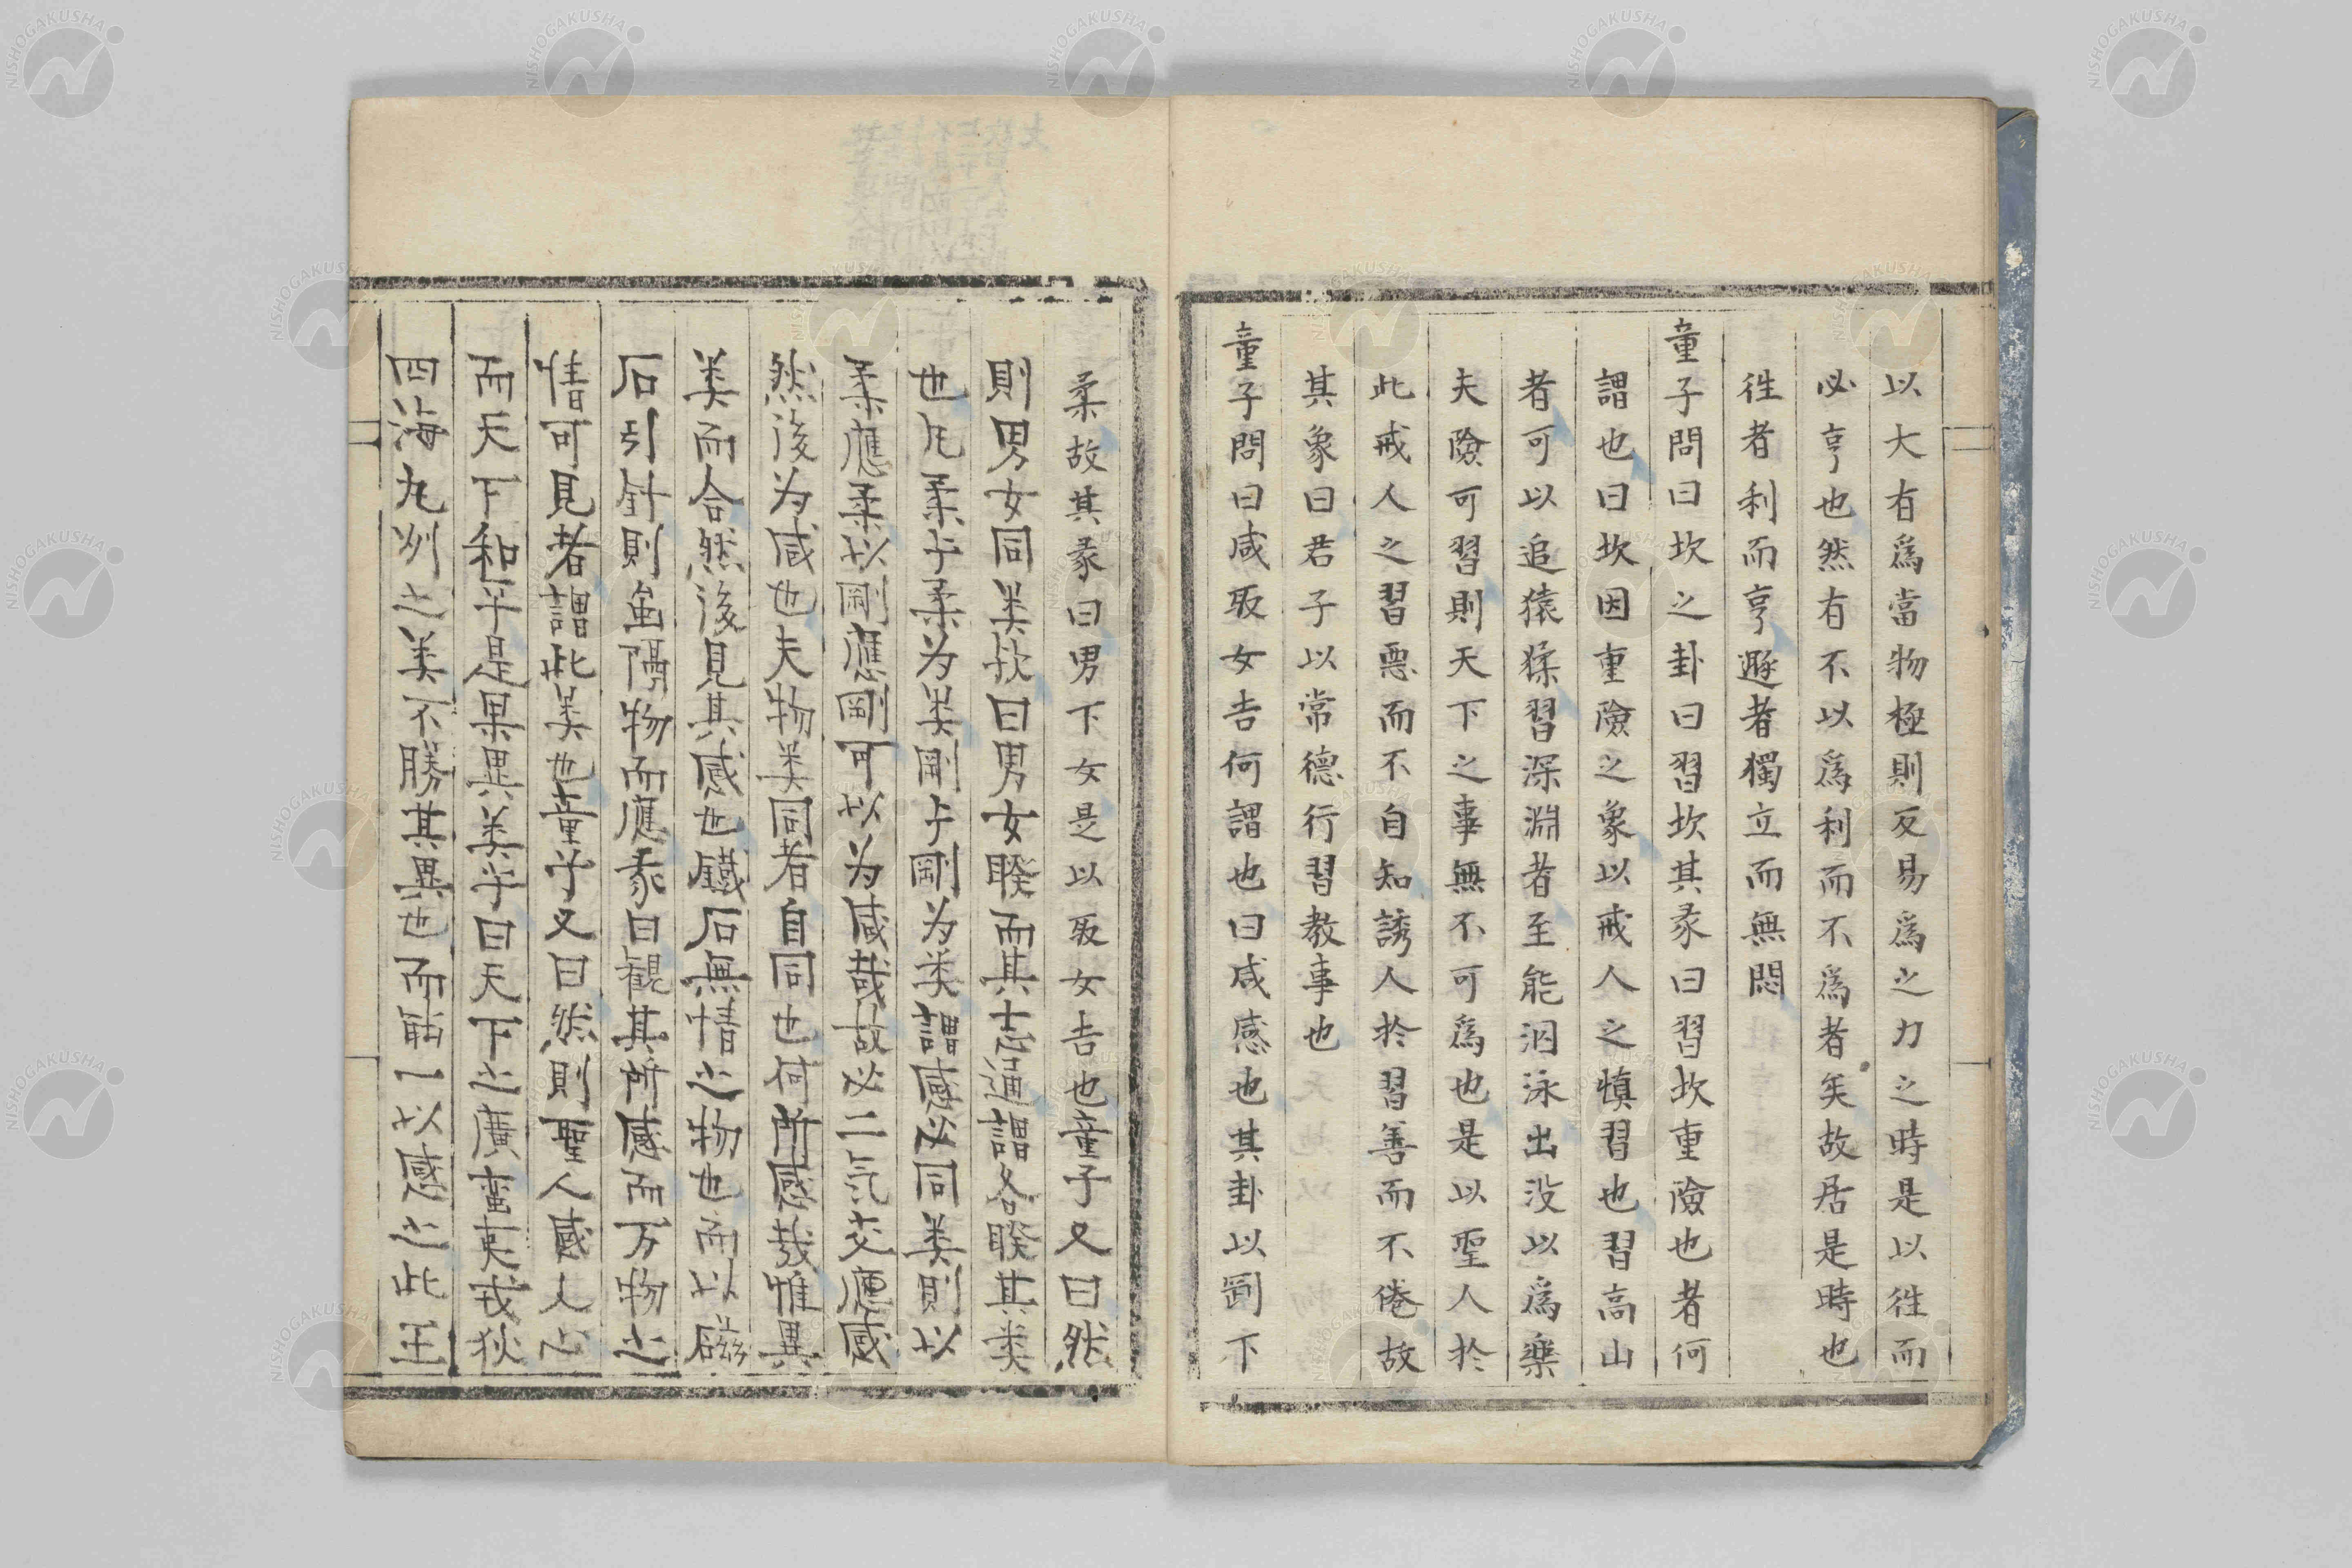 以大有爲當物極則反易爲之力之時是以徃而
必亨也然有不以爲利而不爲者矣故居是時也
徃者利而亨遯者獨立而無悶
童子問曰坎之卦曰習坎其彖曰習坎重險也者何
謂也曰坎因重險之象以戒人之愼習也習高山
者可以追猿猱習深淵者至能泅泳出没以爲樂
夫險可習則天下之事無不可爲也是以聖人於
此戒人之習惡而不自知誘人於習善而不倦故
其象曰君子以常德行習教事也
童子問曰咸取女吉何謂也曰咸感也其卦以剛下
柔故其彖曰男下女是以取女吉也童子又曰然
則男女同类欤曰男女睽而其志通謂各睽其类
也凡柔与柔为类剛与剛为类謂感必同类則以
柔應柔以剛應剛可以为咸哉故必二气交應感
然後为咸也夫物类同者自同也何所感哉惟異
类而合然後見其感也鐵石無情之物也而以磁
石引針則虽隔物而應彖曰観其所感而万物之
情可見者謂此类也童子又曰然則聖人感人心
而天下和平是果異类乎曰天下之廣蛮夷戎狄
四海九州之类不勝其異也而能一以感之此王
NISHOGAKUSHA